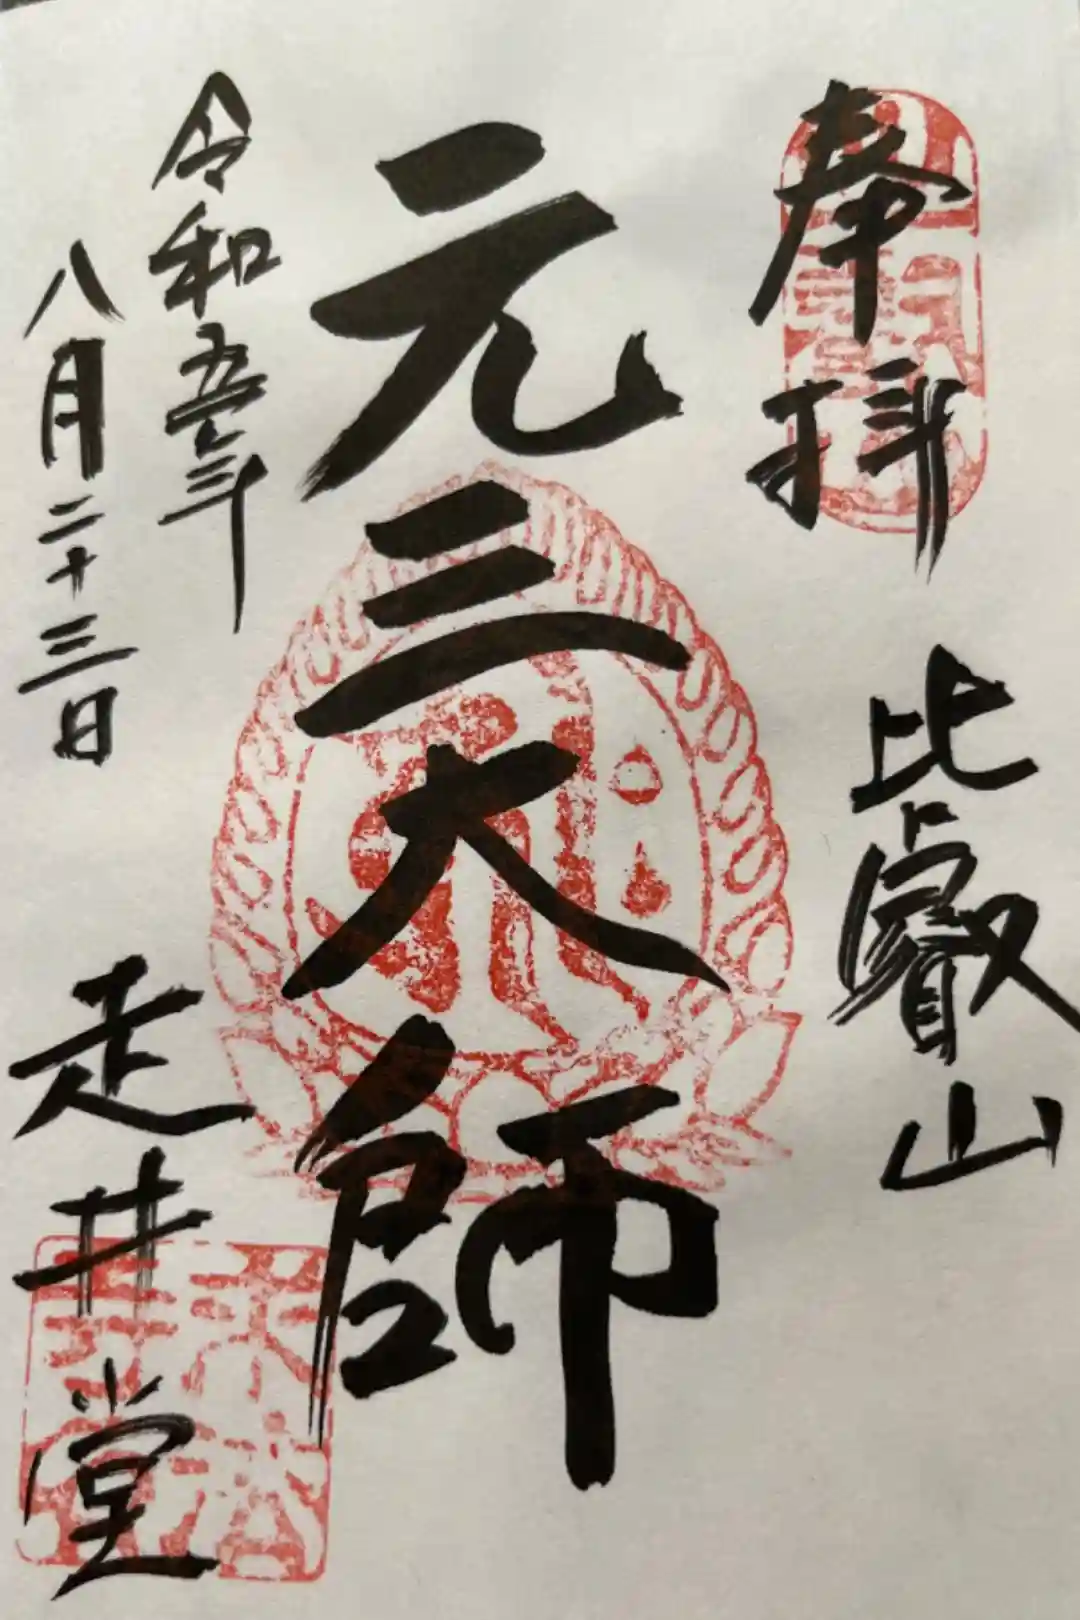 奉拝
比叡山
元三大師
令和五年
八月二十三日
走井堂